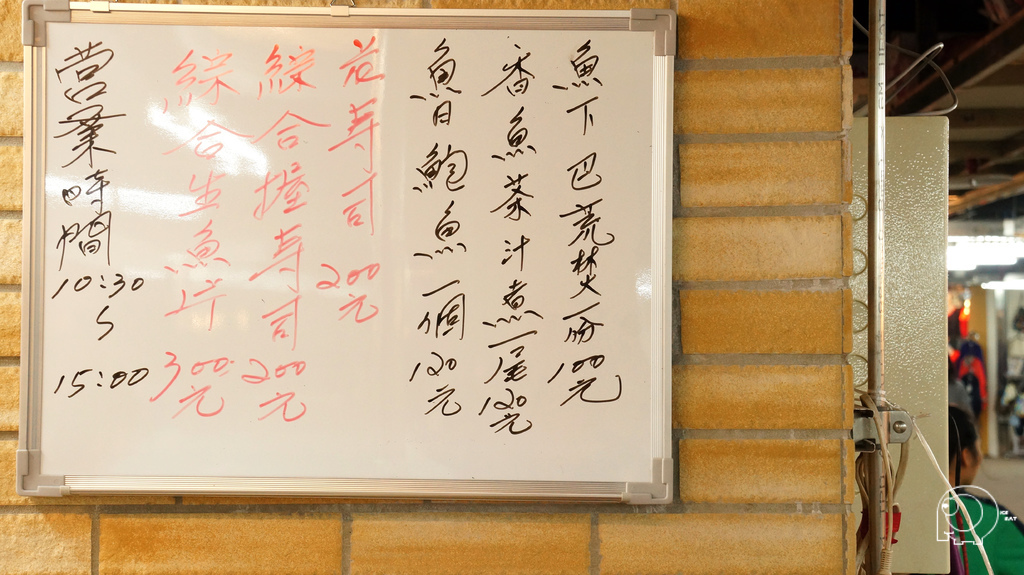 魚下巴荒焚一份100元
香魚茶汁煮一尾120元
魚日鮑魚一個120元
花寿司200元
綜合握寿司200元
綜合生魚片300元
営業時間10:30~15:00